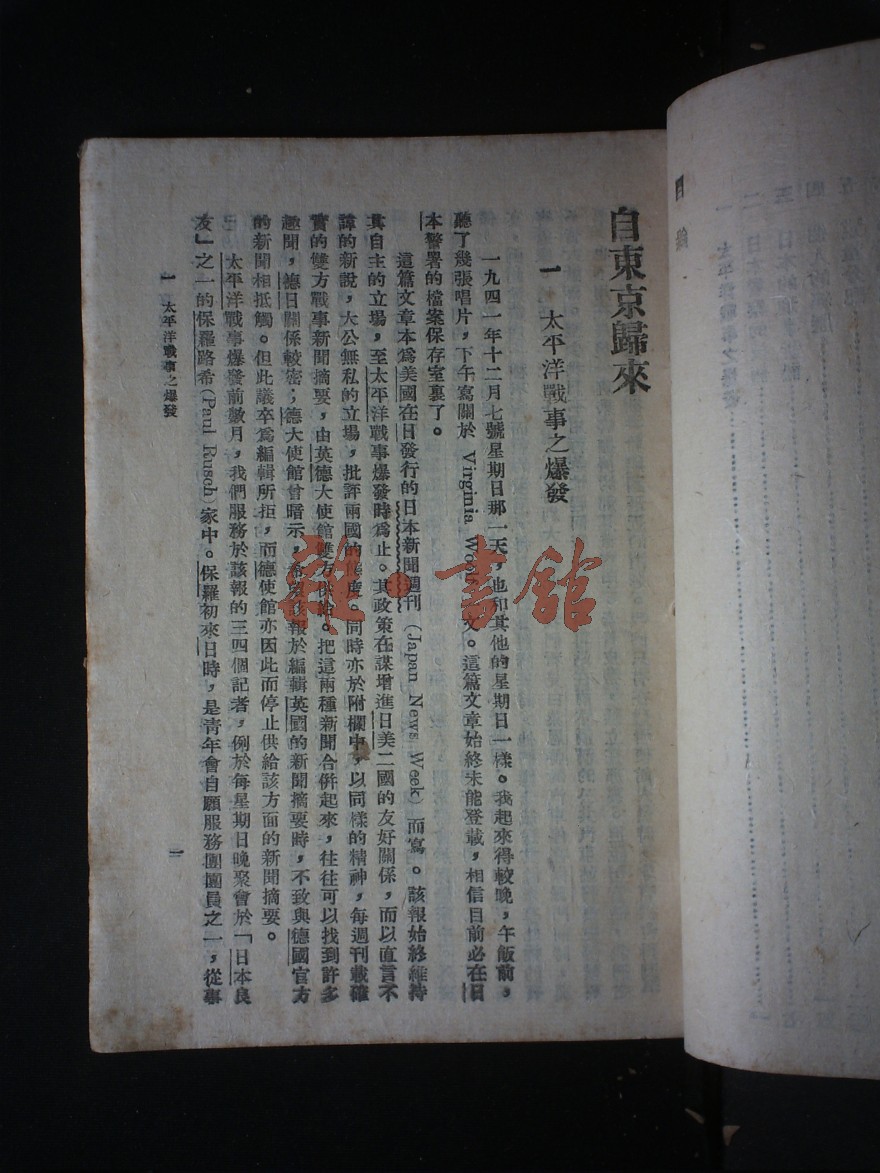 自東京歸來
一 太平洋戰事之爆發
一九四一年十二月七號星期日那一天，也和其他的星期日一樣。我起來得較晚，午飯前，
聽了幾張唱片，下午寫關於 Virginia 文。這篇文章始終未能登載，相信目前必在日
本警署的檔案保存室裏了。
這篇文章本為美國在日發行的日本新聞週刊 (Japan News Week) 而寫。該報始終維持
其自主的立場，至太平洋戰事爆發時為止。其政策在謀增進日美二國的友好關係，而以直言不
諱的新說，大公無私的立場，批評兩國的態度。同時亦於附欄中，以同樣的精神，每週刊載確
實的雙方戰事新聞摘要，由英德大使館雙方供給。把這兩種新聞合併起來，往往可以找到許多
趣聞，德日關係較密；德大使館曾暗示，希望該報於編輯英國的新聞摘要時，不致與德國官方
的新聞相抵觸。但此議卒為編輯所拒，而德使館亦因此而停止供給該方面的新聞摘要。
太平洋戰事爆發前數月，我們服務於該報的三四個記者，例於每星期日晚聚會於「日本良
友」之一的保羅路希 (Paul Rusch) 家中。保羅初來日時，是青年會自願服務團團員之一，從事
一 太平洋戰事之爆發
一
目錄
雜·書館